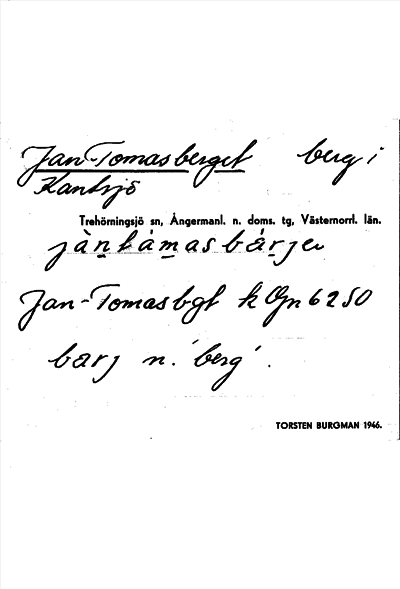 Jan-Tomasberget berg i
Kantsjö
Trehörningsjö sn, Ångermanl. n. doms. tg, Västernorrl. län.
jàntámasbárjə
Jan-Tomasbgt k Ojn 6250
barj n. 'berg'.
TORSTEN BURGMAN 1946.